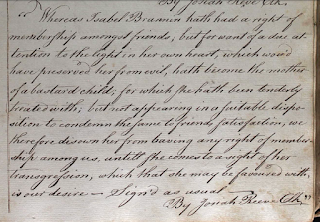 By Josiah Reeve Clk
"Whereas Isabel Brannin hath had a right of
membership amongst friends, but for want of a due at
tention to the light in her own heart, which would
have preserved her from evil, hath become the mother
of a bastard child; for which she hath been tenderly
treated with, but not appearing in a suitable dispo-
sition to condemn the same to friends satisfaction, we
therefore disown her from having any right of member
ship among us, untill she comes to a right of her
transgression, which that she may be favoured with,
is our desire — Sign'd as usual
By Jonah Reeve Clk"